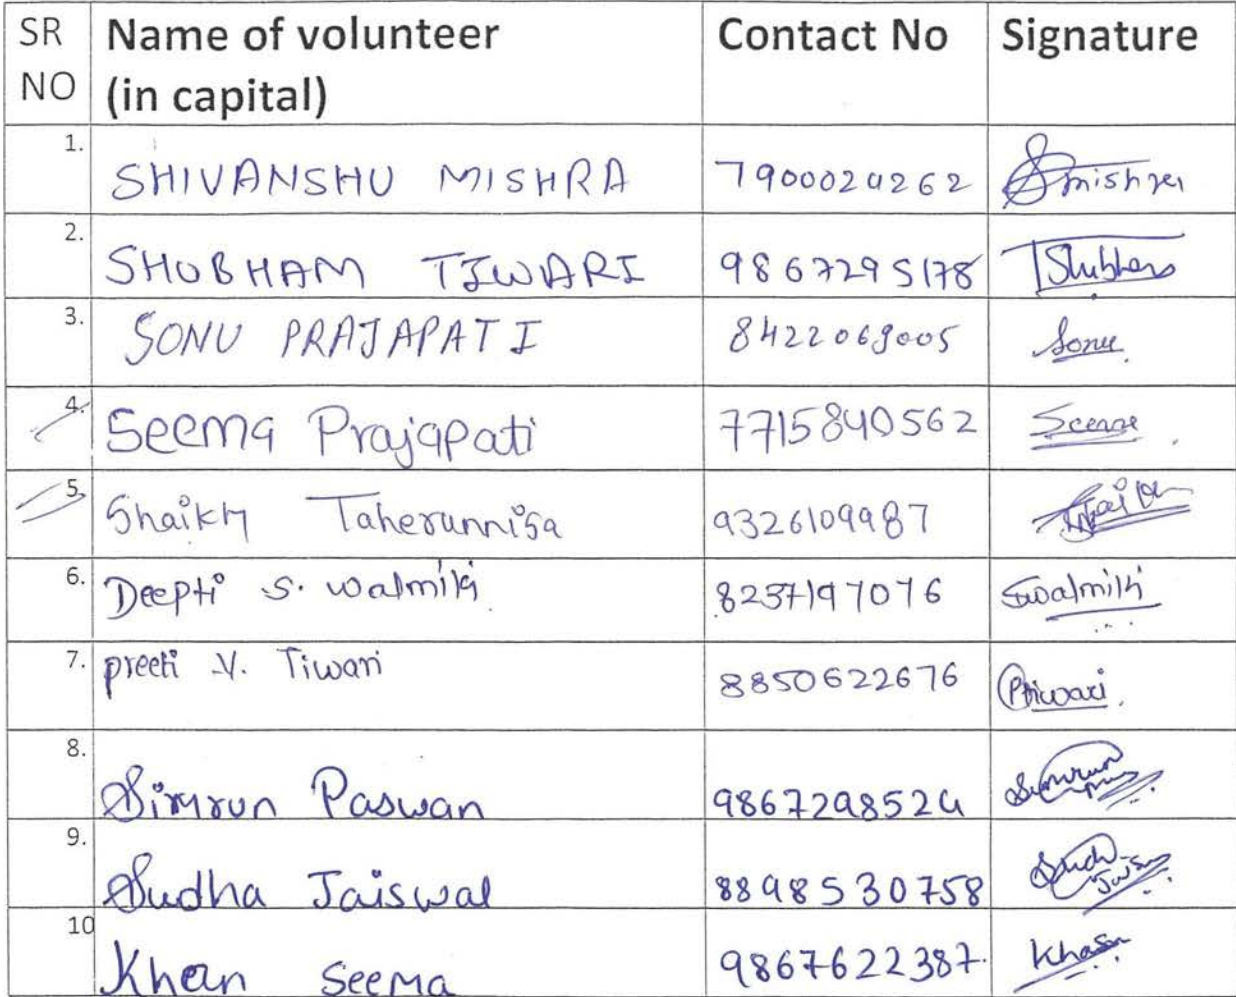 SR Name of volunteer Contact No Signature
NO (in capital)
1. SHIVANSHU MISHRA 7900024262 Smishra
2. SHUBHAM TIWARI 9867295178 TShubham
3. SONU PRAJAPATI 8422068005 Sonu
4. Seema Prajapati 7715840562
5. Shaikh Taherunnisa 9326109987 Shaikh
6. Deepti S. Walmiki 8237197076 Swalmiki
7. preeti V. Tiwari 8850622676 Ptiwari.
8. Simrun Paswan 9867298524 Simrun
9. Sudha Jaiswal 8898530758
10 Khan Seema 9867622387. Khan